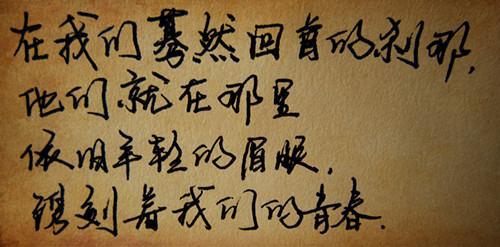 在我们蓦然回首的刹那,
他们就在那里
依旧年轻的眉眼,
镌刻着我们的青春.